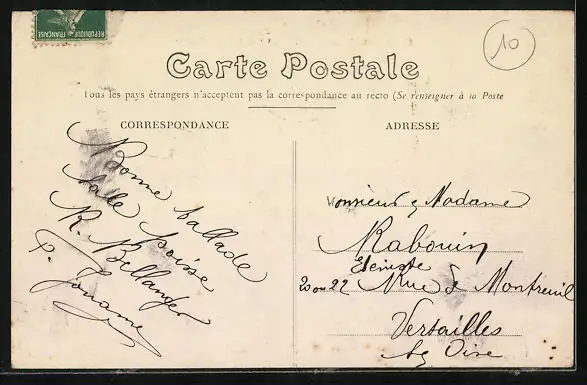 RÉPUBLIQUE FRANÇAISE
10
Carte Postale
Tous les pays étrangers n'acceptent pas la correspondance au recto (Se renseigner à la Poste
CORRESPONDANCE
ADRESSE
Bonne ballade
salle
R. Bellanger
Monsieur & Madame
Rabouin
Ebéniste
20 ou 22 Rue de Montreuil
Versailles
Oise